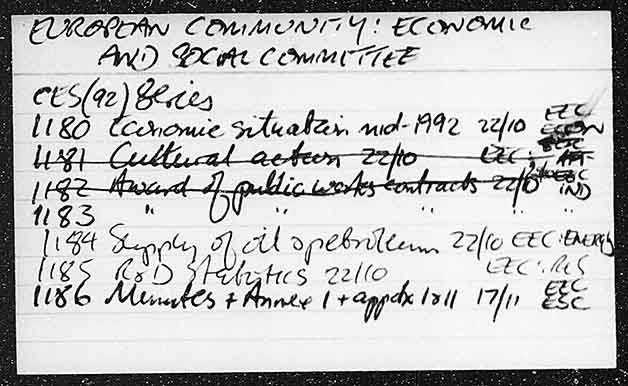 EUROPEAN COMMUNITY: ECONOMIC
AND SOCIAL COMMITTEE
CES(92) Series
1180 Economic situation mid-1992 22/10 EEC ECON
1181 Cultural action 22/10 EEC:
1182 Award of public works contracts 22/10 EEC IND
1183 " " " " "
1184 Supply of oil & petroleum 22/10 EEC:ENERGY
1185 R&D statistics 22/10 EEC:RES
1186 Minutes + Annex 1 + appdx I & II 17/11 EEC ESC